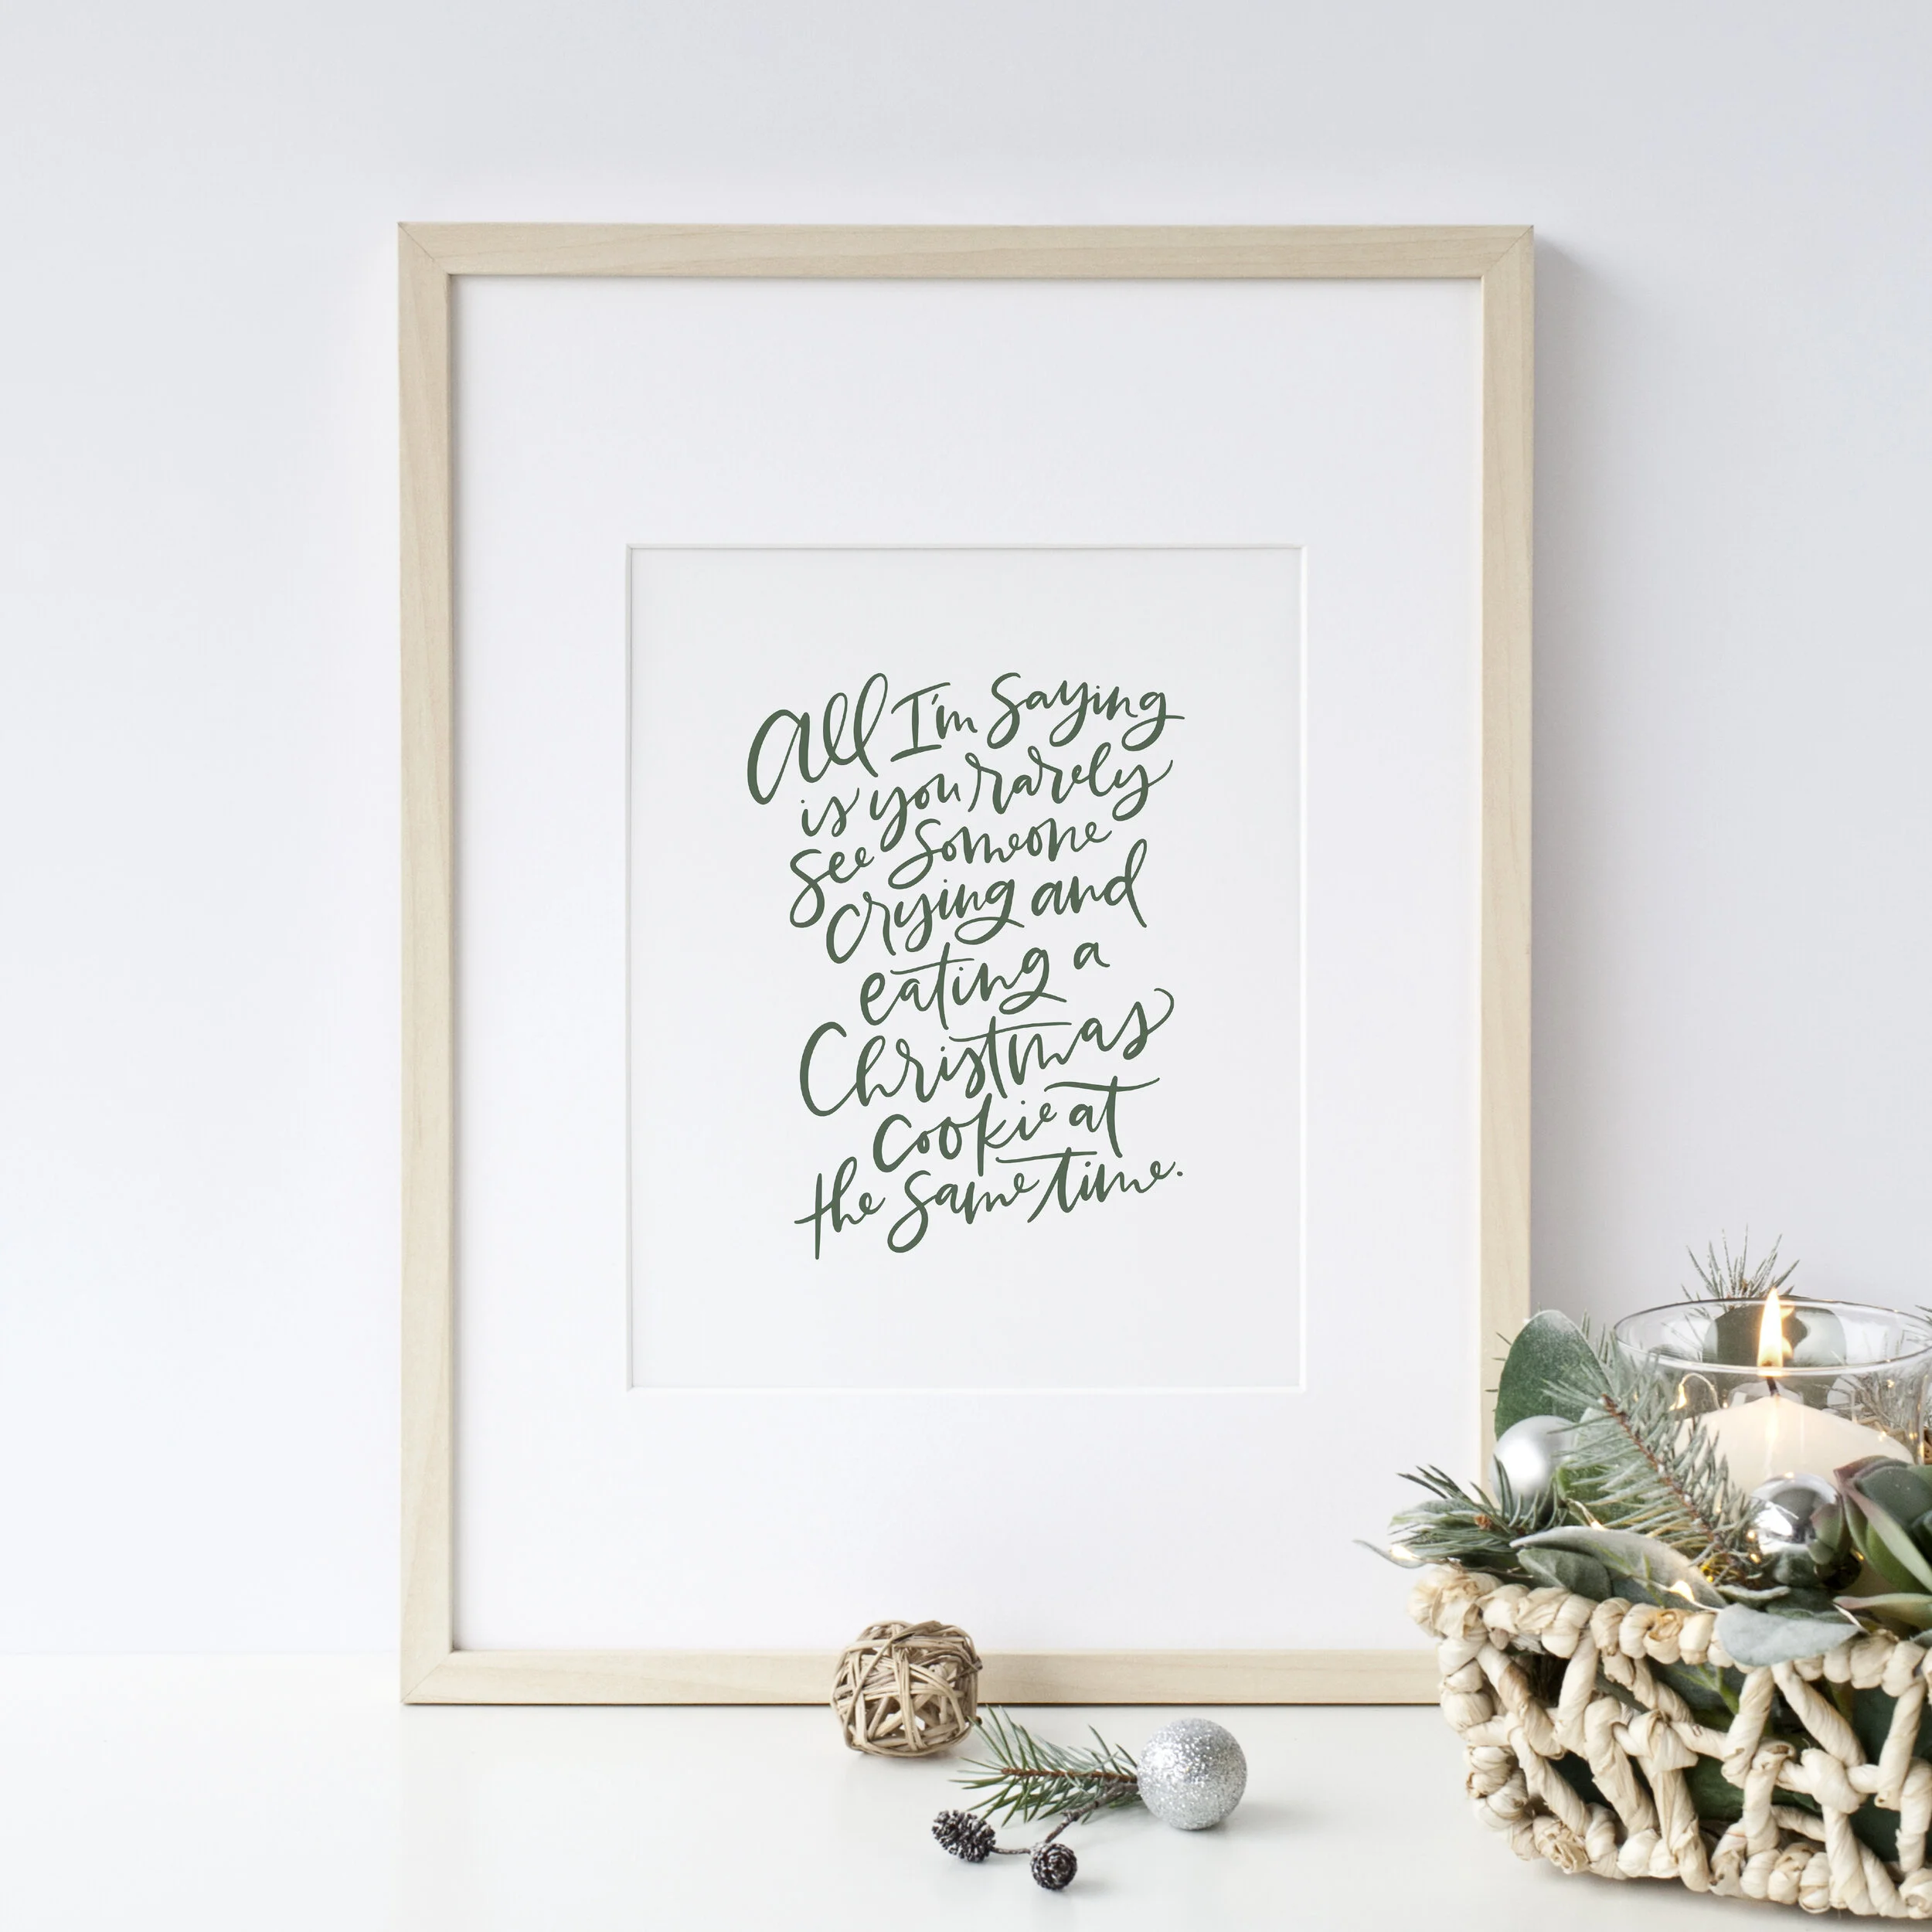 All I'm Saying
is you rarely
see someone
crying and
eating a
Christmas
cookie at
the same time.